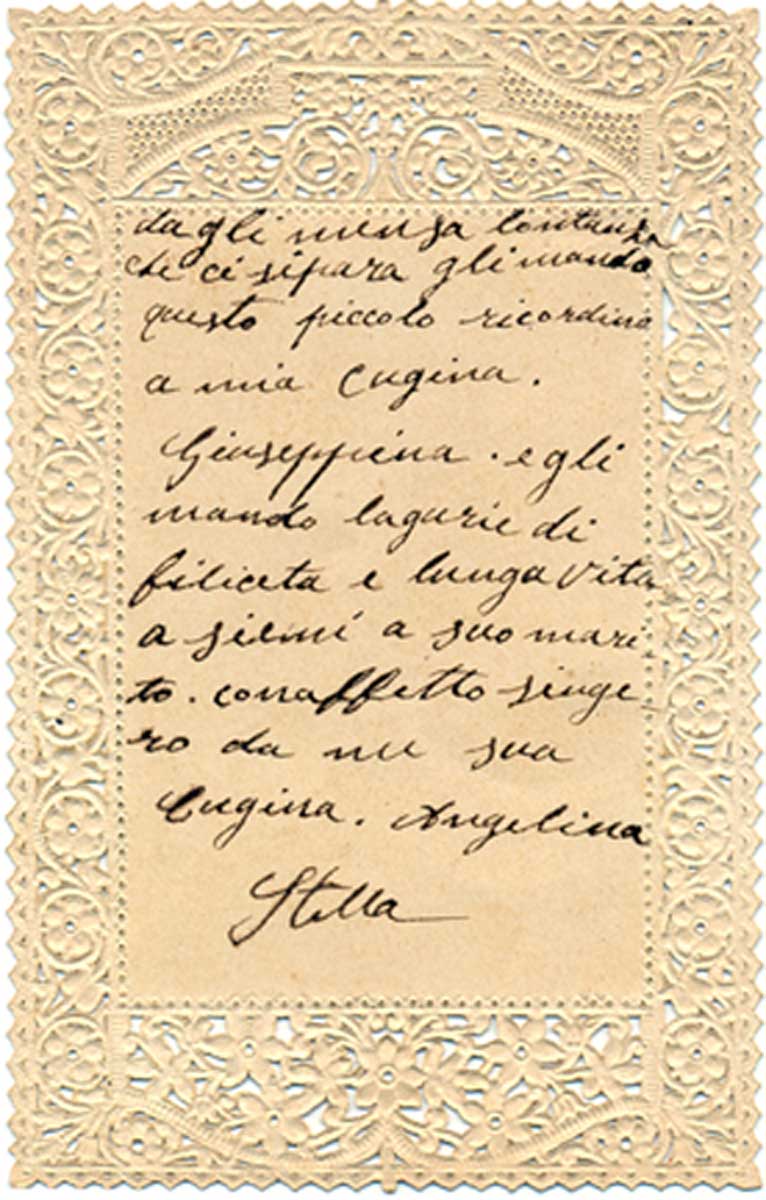 dagli mensa lontansa
che ci sipara gli mando
questo piccolo ricordino
a mia Cugina.
Giuseppina. e gli
mando lagurie di
filiceta e lunga vita
a siemi a suo mari
to. con affetto singe
ro da me sua
Cugina. Angelina
Stella